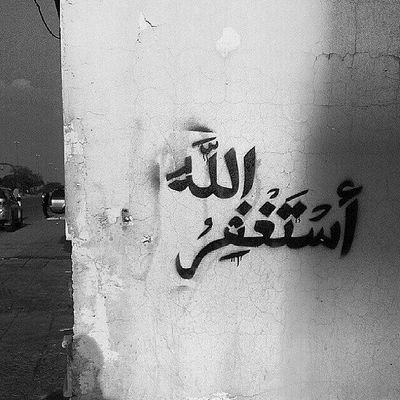 أَسْتَغْفِرُ
اللَّه